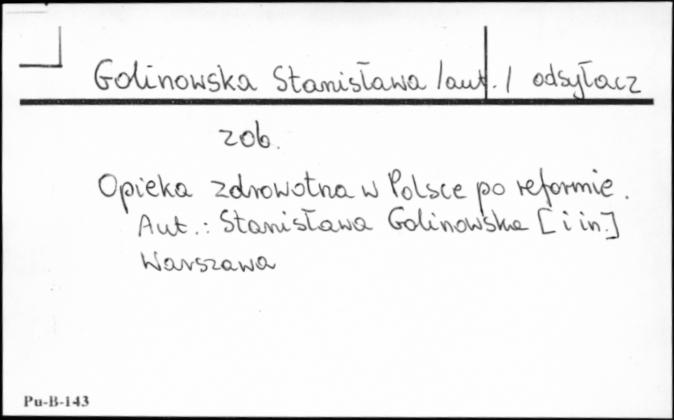 Golinowska Stanisława /aut./ odsyłacz
zob.
Opieka zdrowotna w Polsce po reformie.
Aut.: Stanisława Golinowska [i in.]
Warszawa
Pu-B-143